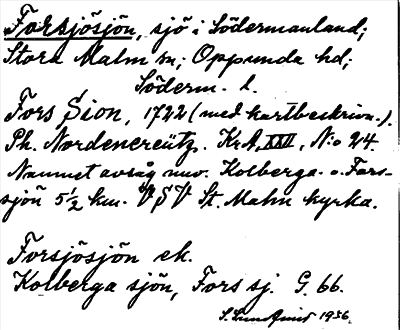 Forsjösjön, sjö i Södermanland;
Stora Malm sn; Oppunda hd;
Söderm. l.
Fors Sion, 1722 (med kartbeskrivn.).
Ph. Nordencreütz. KrA, XXV, N:o 24.
Namnet avsåg nuv. Kolberga- o. Fors-
sjön 5½ km. VSV St. Malm kyrka.
Forsjösjön ek.
Kolberga sjön, Fors sj. G. 66.
S. Lundqvist 1936.